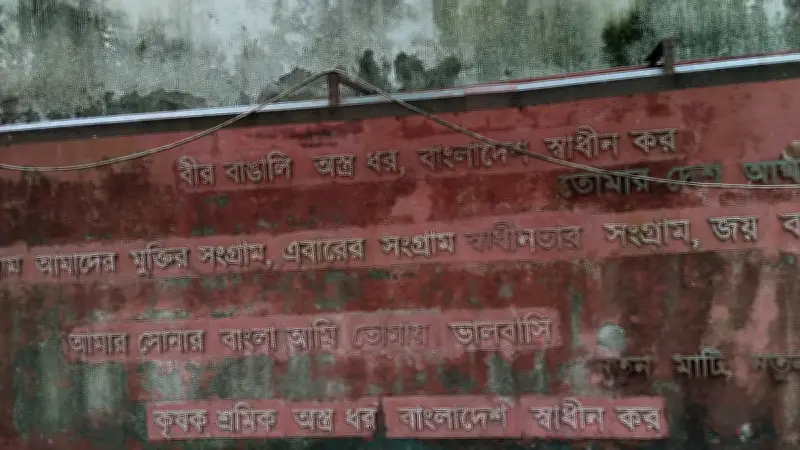 বীর বাঙালি অস্ত্র ধর, বাংলাদেশ স্বাধীন কর
তোমার দেশ
আমাদের মুক্তির সংগ্রাম, এবারের সংগ্রাম স্বাধীনতার সংগ্রাম, জয়
আমার সোনার বাংলা আমি তোমায় ভালবাসি
মাটি,
কৃষক শ্রমিক অস্ত্র ধর বাংলাদেশ স্বাধীন কর